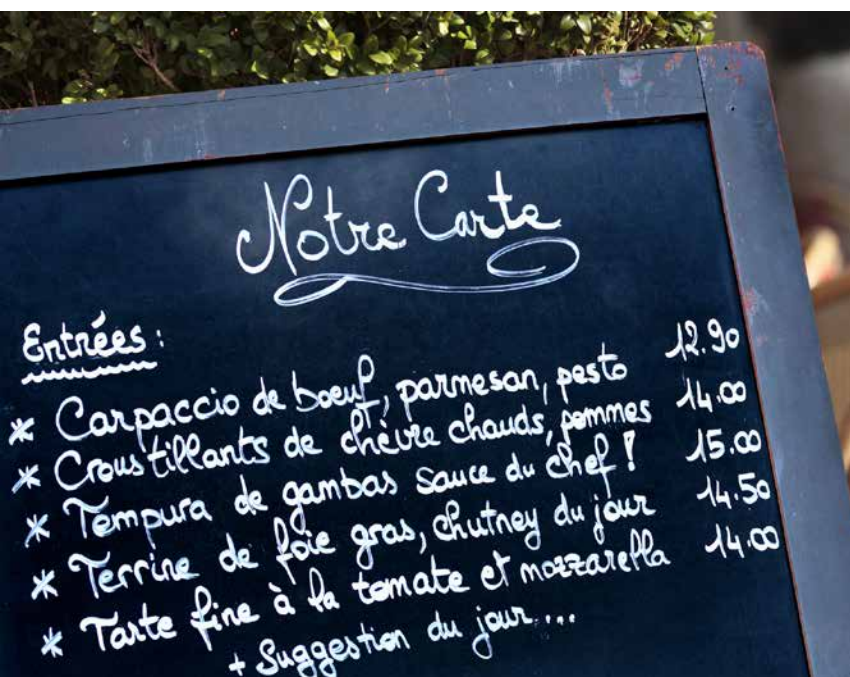 Notre Carte
Entrées :
* Carpaccio de boeuf, parmesan, pesto 12.90
* Croustillants de chèvre chauds, pommes 14.00
* Tempura de gambas sauce du chef ! 15.00
* Terrine de foie gras, chutney du jour 14.50
* Tarte fine à la tomate et mozzarella 14.00
+ Suggestion du jour....